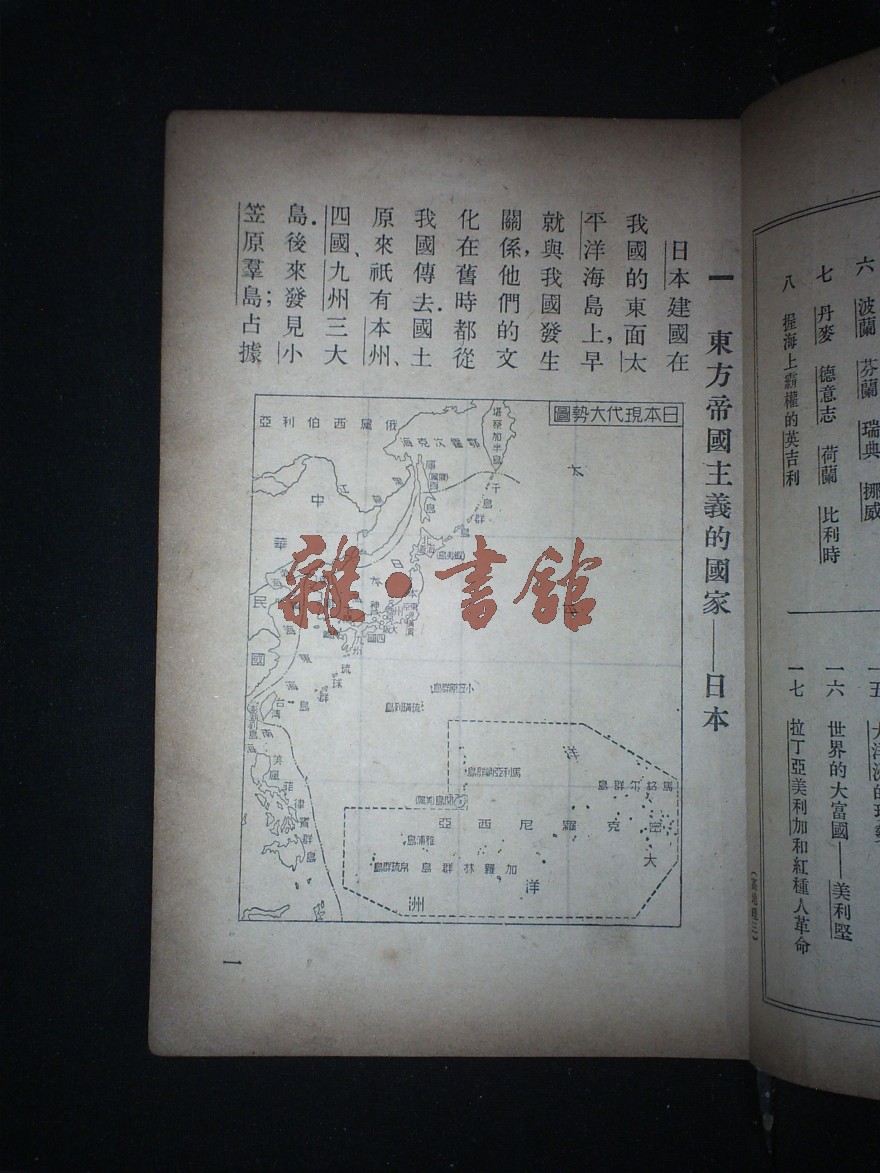 六 波蘭 芬蘭 瑞典 挪威
七 丹麥 德意志 荷蘭 比利時
八 握海上霸權的英吉利
一六 世界的大富國——美利堅
一七 拉丁亞美利加和紅種人革命
一 東方帝國主義的國家——日本
日本建國在
我國的東面太
平洋海島上,早
就與我國發生
關係,他們的文
化在舊時都從
我國傳去.國土
原來祇有本州、
四國、九州三大
島.後來發見小
笠原羣島;占據
日本現代大勢圖
俄屬西伯利亞
鄂霍次克海
堪察加半島
千島群島
太
平
洋
中華民國
日本
本州
四國
九州
琉球群島
台灣
小笠原群島
琉璜列島
馬利亞納群島
馬紹爾群島
密克羅尼西亞
加羅林群島
大洋洲
美屬菲律賓群島
雜·書館
一